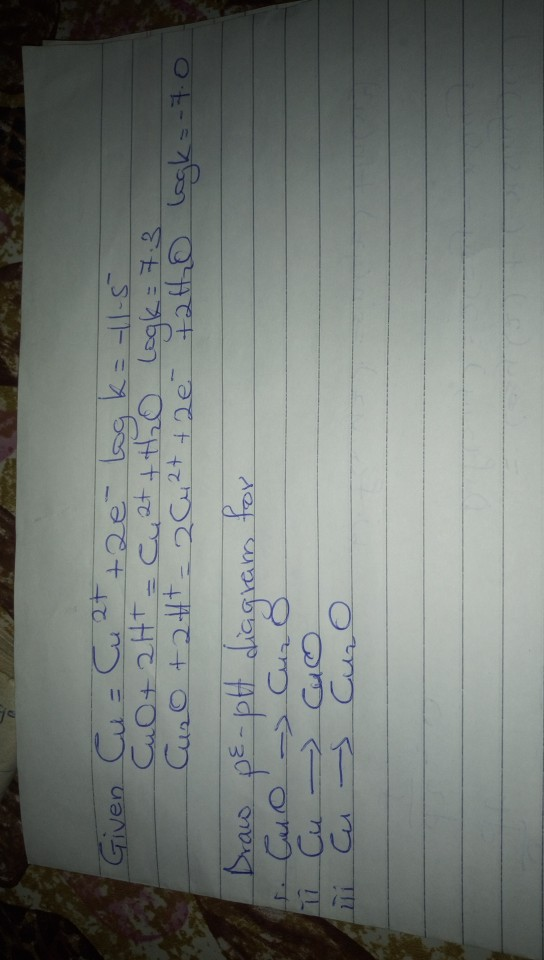 Given Cu = Cu²⁺ + 2e⁻ log k = -11.5
CuO + 2H⁺ = Cu²⁺ + H₂O log k = 7.3
Cu₂O + 2H⁺ = 2Cu²⁺ + 2e⁻ + 2H₂O log k = -7.0
Draw pε-pH diagram for
i. CuO → Cu₂O
ii Cu → CuO
iii Cu → Cu₂O